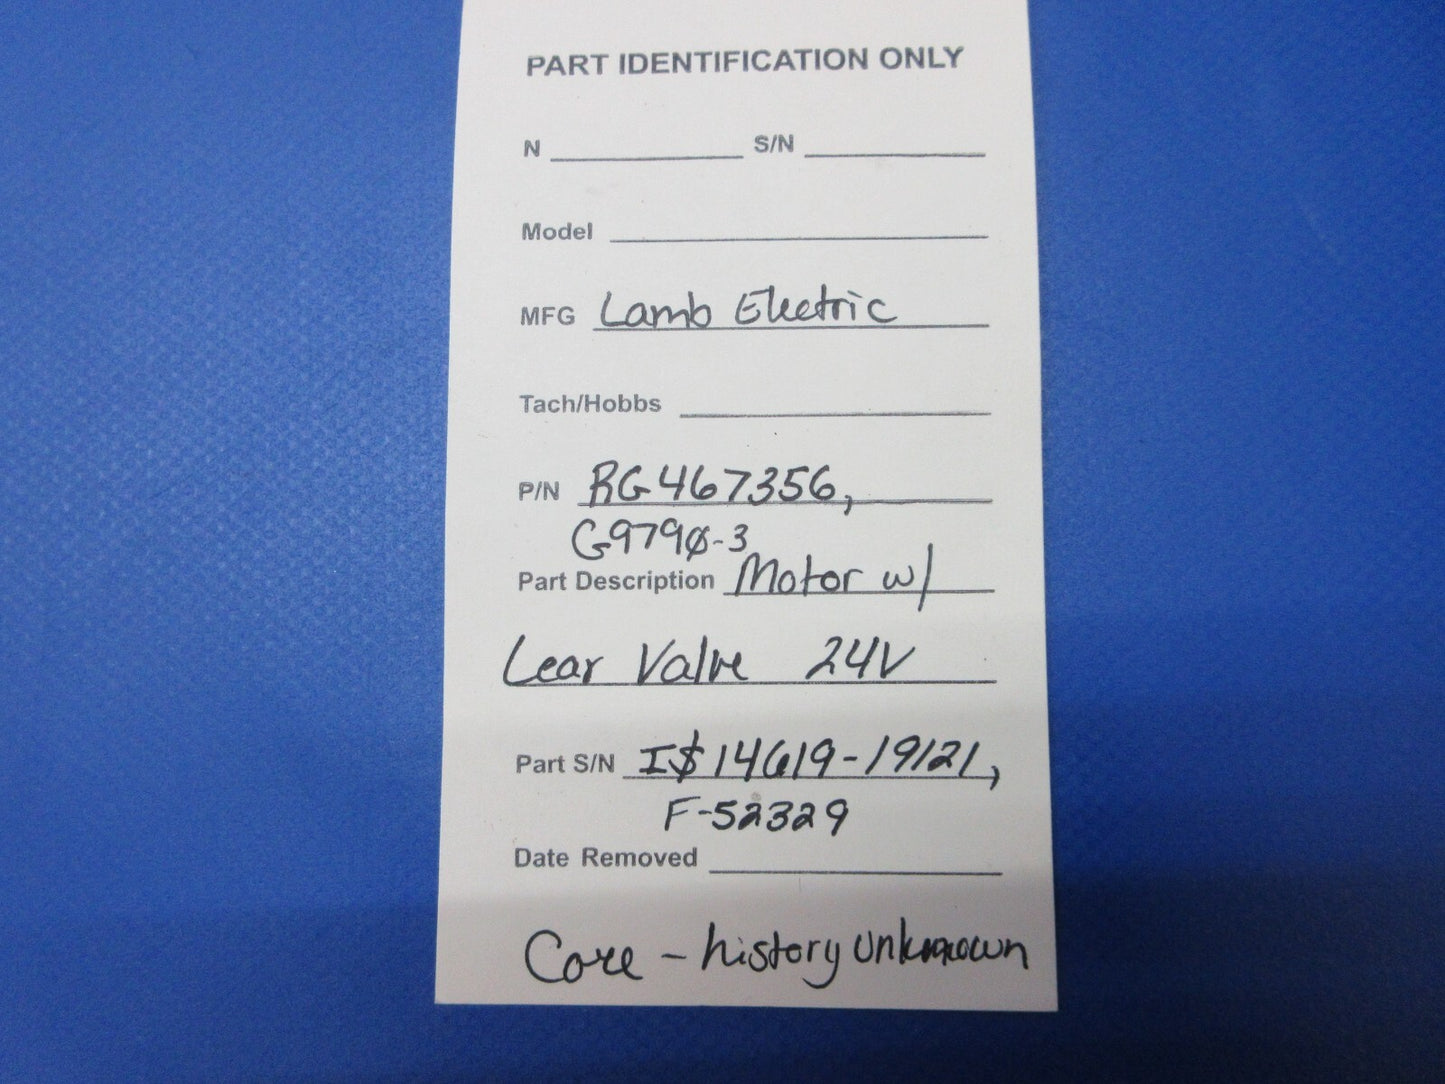 PART IDENTIFICATION ONLY
N S/N
Model
MFG Lamb Electric
Tach/Hobbs
P/N RG467356,
G9790-3
Part Description Motor w/
Lear Valve 24V
Part S/N I$14619-19121,
F-52329
Date Removed
Core - history unknown